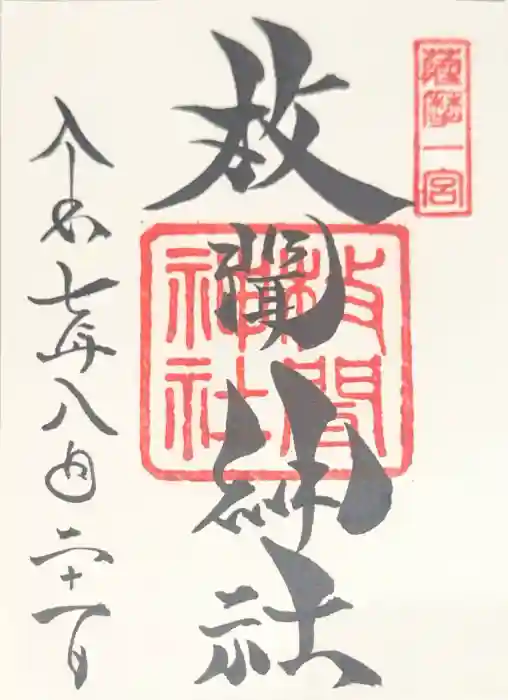 薩摩一宮
枚聞神社
枚聞神社
令和七年八月二十一日